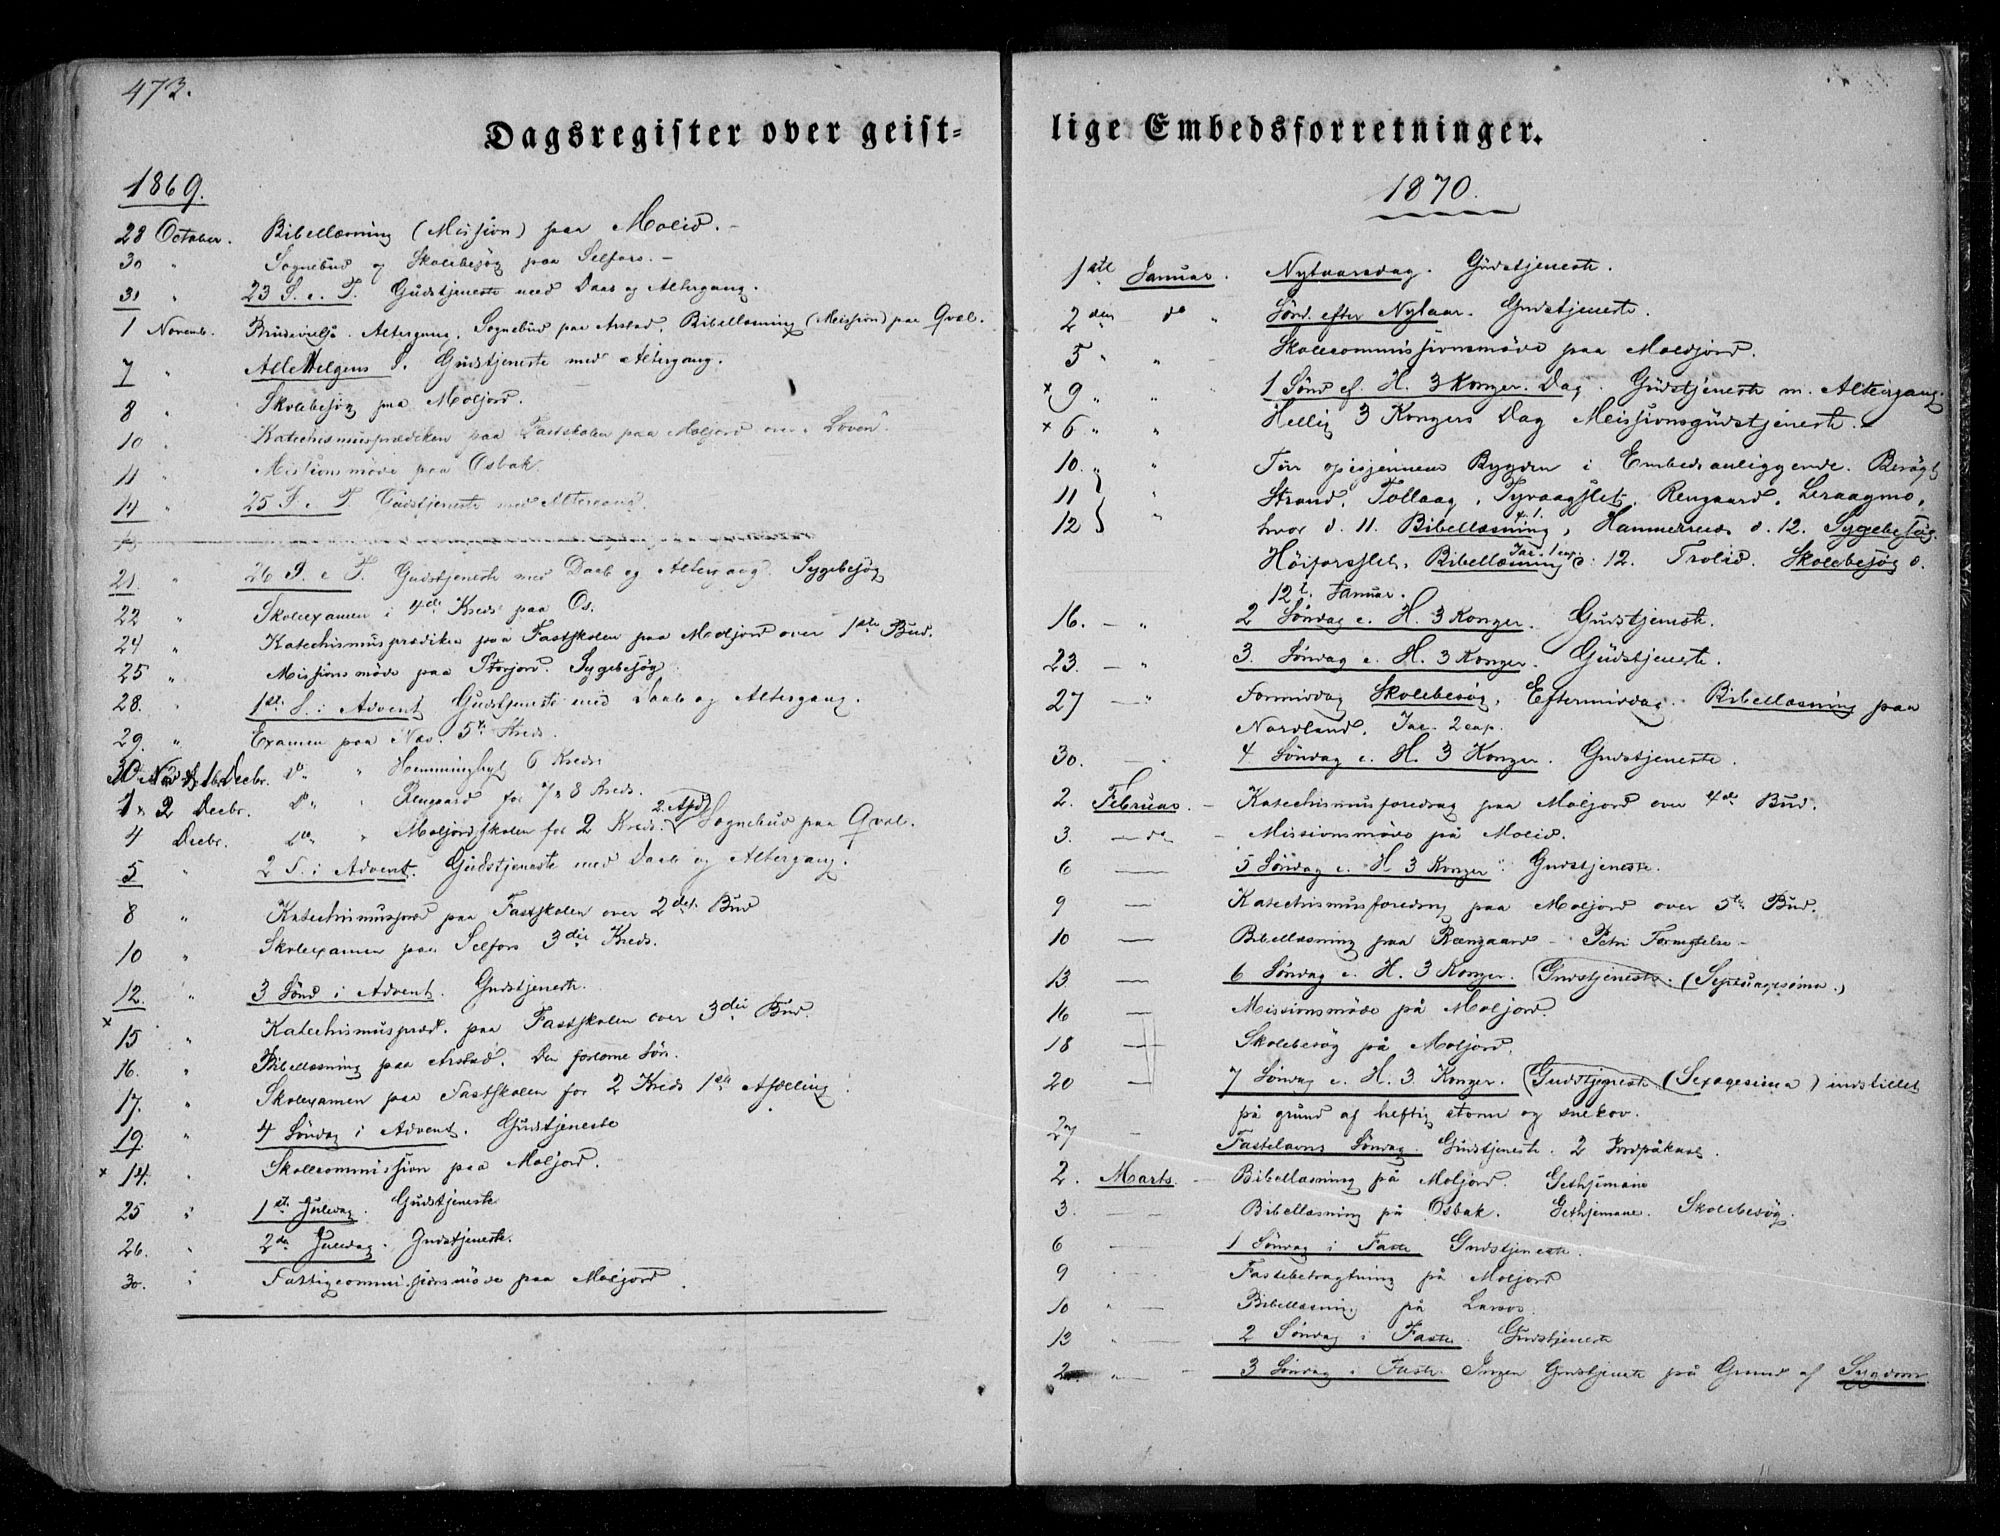 473.
Dagsregister over geist-
1869.
28 October. Bibellæsning (Mission) paa Molid. -
30 " Sognebud og Skolebesøg paa Selfors. -
31 " 23 S. e. T. Gudstjeneste med Daab og Altergang.
1 Novemb. Brudevielse. Altergang. Sognebud paa Arstad. Bibellæsning (Mission) paa Qval.
7 " Alle Helgens S. Gudstjeneste med Altergang.
8 " Skolebesøg paa Moljord.
10 Katechismusprædiken paa Fastskolen paa Moljord over Loven.
11 Missionsmöde paa Osbak.
14 25 S. e T. Gudstjeneste med Altergang.
21 " 26 S. e T. Gudstjeneste med Daab og Altergang. Sygebesøg
22 " Skolexamen i 4de Kreds paa Os.
24 " Katechismusprædiken paa Fastskolen paa Moljord over 1ste Bud.
25 " Missionsmöde paa Storjord. Sygebesøg
28. " 1ste S. i Advent Gudstjeneste med Daab og Altergang.
29. " Examen paa Næs. 5te Kreds.
30 Nov & 1 Decbr. Do " Hemminghyt 6 Kreds.
1 & 2 Decbr. Do " " Rengaard for 7 & 8 Kreds.
4 Decbr. Do " Moljordskolen for 2 Kreds. 2. Afd. Sognebud paa Qval.
5 " 2 S. i Advent. Gudstjeneste med Daab og Altergang.
8 " Katechismusford paa Fastskolen over 2det Bud
10 " Skolexamen paa Selfors 3die Kreds.
12. " 3 Sönd i Advent. Gudstjeneste.
x 15 " Katechismuspræd. paa Fastskolen over 3die Bud.
16. " Bibellæsning paa Arstad. Den forlorne Søn.
17. " Skolexamen paa Fastskolen for 2 Kreds 1ste Afdeling.
19. " 4 Söndag i Advent. Gudstjeneste
x 14. " Skolecommission paa Moljord.
25 " 1ste Juledag. Gudstjeneste
26. " 2den Juledag. Gudstjeneste.
30. " Fattigcommissionsmöde paa Moljord.
lige Embedsforretninger.
1870.
1ste Januar. Nytaarsdag. Gudstjeneste.
2den do " Sönd. efter Nytaar. Gudstjeneste.
5 " " - Skolecommissionsmöde paa Moldjord.
x 9 " " 1 Sönd ef. H. 3 Konger. Dag. Gudstjeneste m. Altergang.
x 6 " " Hellig 3 Kongers Dag Missionsgudstjeneste. -
10. " " Tur opigjennem Bygden i Embedsanliggende. Besøgt
11 " Strand, Tollaag, Tyvaagslet, Rengaard, Leraagmo,
12 " hvor d. 11. Bibellæsning, Hammernes d. 12. Sygebesøg.
Höiforsslet, Bibellæsning Jac. 1 cap. d. 12. Trolid. Skolebesøg d.
12t. Januar.
16. - " 2 Söndag e. H. 3 Konger. Gudstjeneste.
23. - " 3. Söndag e. H. 3 Konger. Gudstjeneste.
27 - " Formiddag Skolebesøg, Eftermiddag. Bibellæsning paa
Nordland. Jac. 2 cap.
30. - " 4 Söndag e. H. 3 Konger. Gudstjeneste.
2. Februar. - Katechismusforedrag paa Moljord over 4de Bud.
3. - do - Missionsmöde på Molid.
6 - 5 Söndag e. H 3 Konger. Gudstjeneste.
9 - Katechismusforedrag paa Moljord over 5te Bud.
10 - Bibellæsning paa Rængaard - Petri Fornegtelse -
13 - 6 Söndag e. H. 3 Konger. Gudstjeneste. (Septuagesima.)
16 - Missionsmöde på Moljord.
18 - Skolebesøg på Moljord.
20 - 7 Söndag e. H. 3. Konger. Gudstjeneste (Sexagesima) indstillet
på grund af heftig storm og snekov.
27 - Fastelavns Söndag. Gudstjeneste. 2 Jordpåkast.
2. Marts. - Bibellæsning på Moljord. Gethsemane
3. - Bibellæsning på Osbak. Gethsemane. Skolebesøg.
6 - 1 Söndag i Faste Gudstjeneste.
9 - Fastebetragtning på Moljord
10 " - Bibellæsning på
13 " - 2 Söndag i Faste Gudstjeneste
" - 3 Söndag i Faste. Ingen Gudstjeneste på Grund af Sygdom.